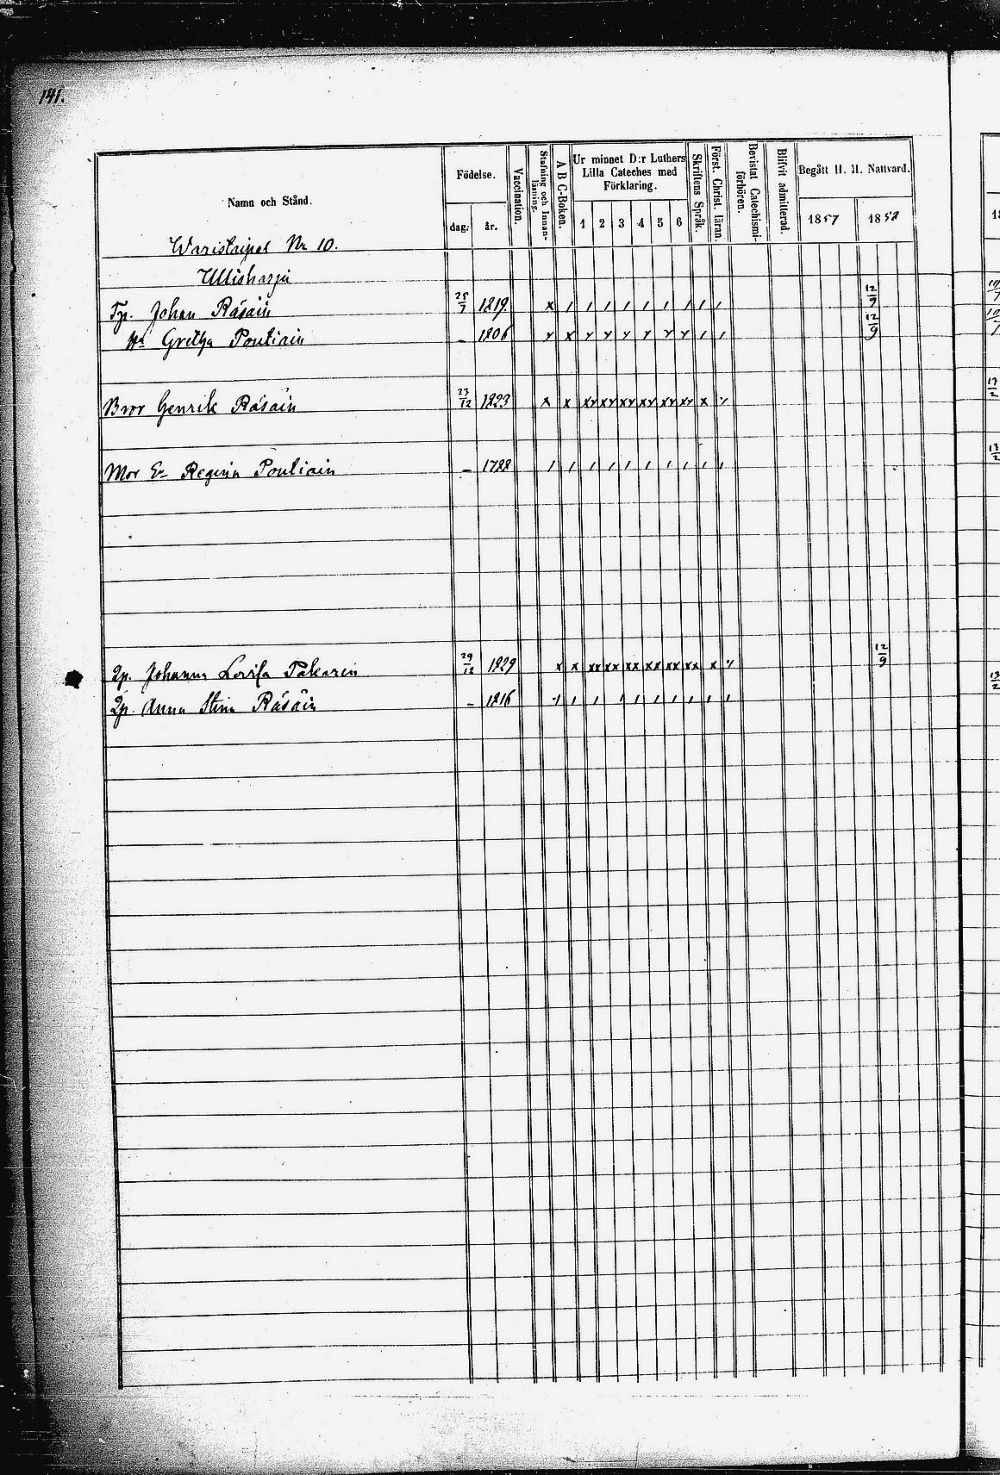 141.
Namn och Stånd.
Födelse.
dag.
år.
Vaccination.
Stafning och Innan-läsning.
A B C-Boken.
Ur minnet D:r Luthers Lilla Cateches med Förklaring.
1 2 3 4 5 6
Skriftens Språk.
Först. Christ. läran.
Bevistat Catechismi-förhören.
Blifvit admitterad.
Begått H. H. Nattvard.
1857 1858
Waristaipal № 10.
Ullisharju
Johan Räsäin 25/7 1819. x / / / / / / / / / / 12/9
Gretha Poutiain – 1806 x x x x x x x x / / 12/9
Bror Henrik Räsäin 23/12 1823 x x xx xx xx xx xx xx x
Mor Regina Poutiain – 1788 / / / / / / / / / /
Johanna Lovisa Pakarin 29/12 1829 x x xx xx xx xx xx xx x 12/9
Anna Stina Räsäin – 1816 / / / / / / / / / /